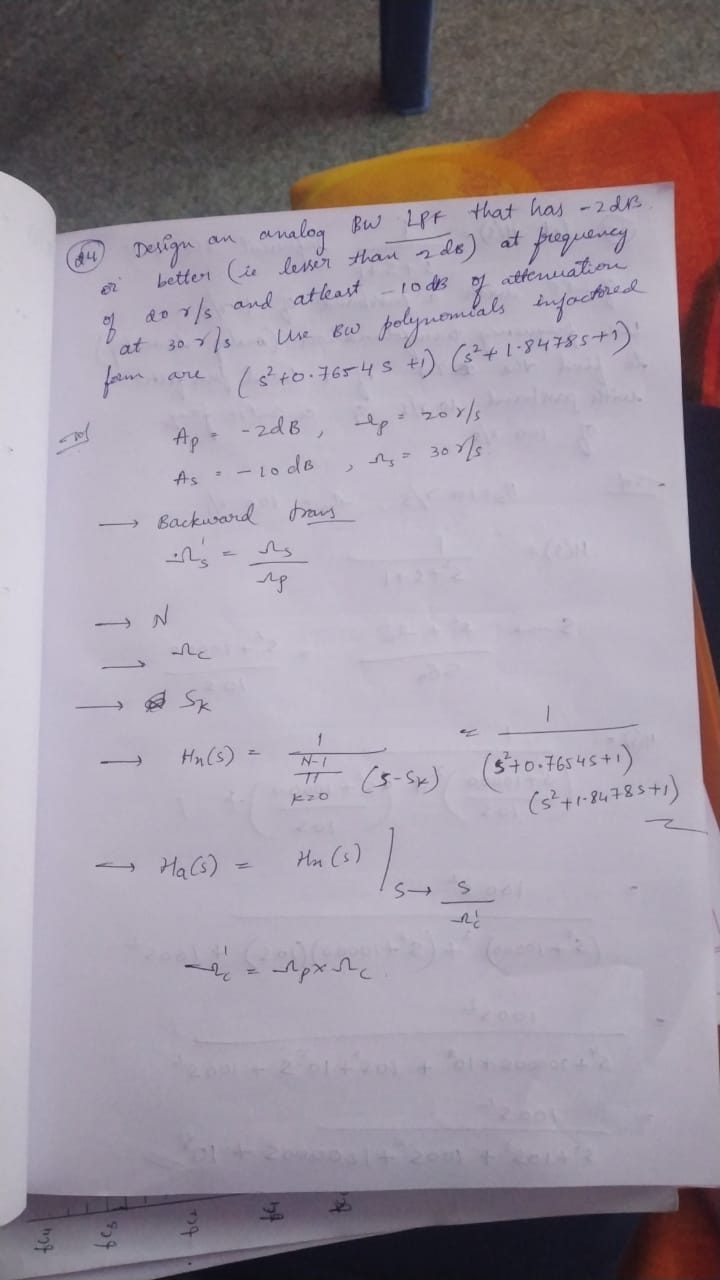 24 Design an analog BW LPF that has -2dB
or better (ie lesser than 2dB) at frequency
of 20 r/s and atleast -10dB of attenuation
at 30 r/s. Use BW polynomials infactored
form are (s²+0.7654s+1) (s²+1.8478s+1)
sol Ap = -2dB, Ωp = 20r/s
As = -10dB, Ωs = 30r/s
→ Backward trans
Ωs' = Ωs/Ωp
→ N
→ Ωc
→ Sk
→ Hn(s) = 1/N-1 π k=0 (s-Sk) = 1/(s²+0.7654s+1) (s²+1.8478s+1)
→ Ha(s) = Hn(s) | s→ s/Ωc'
Ωc' = Ωp×Ωc